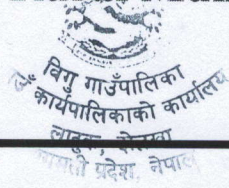 विगु गाउँपालिका
गाउँ कार्यपालिकाको कार्यालय
दोलखा
प्रदेश, नेपाल